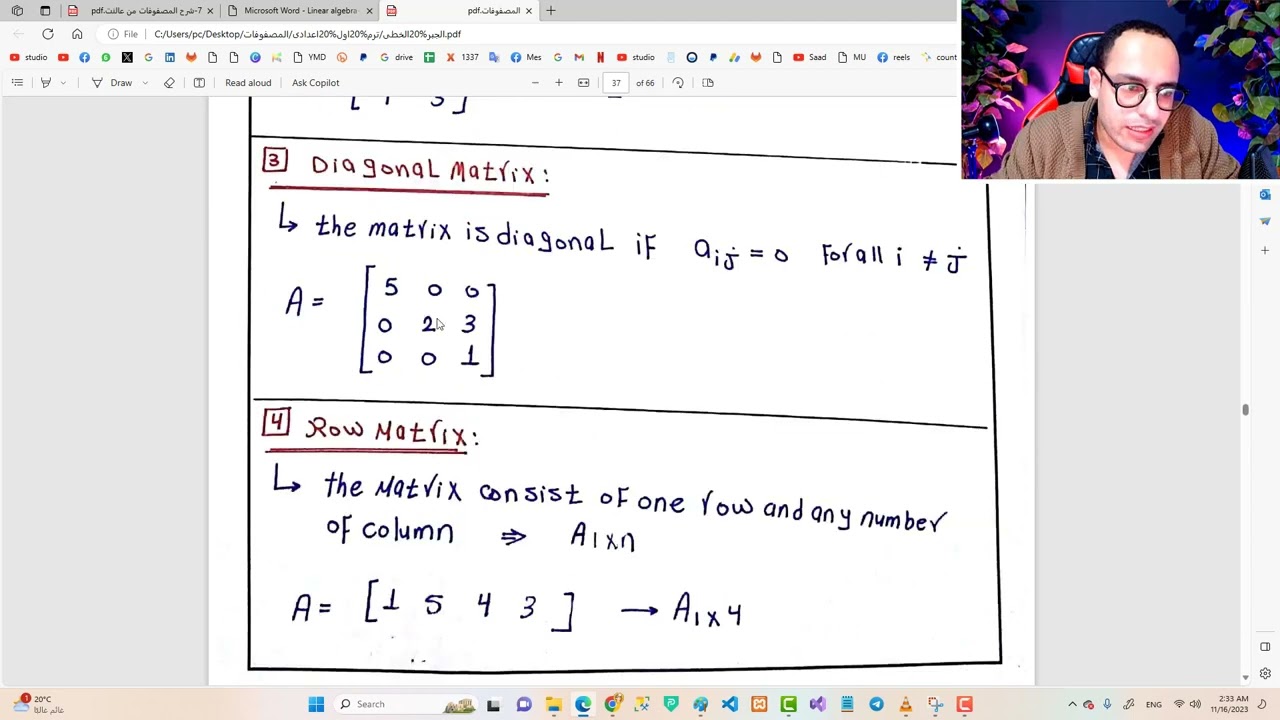 7-شرح المصفوفات من عالتت.pdf
Microsoft Word - Linear algebra
المصفوفات.pdf
File
C:/Users/pc/Desktop/المصفوفات/ترم%20اول%20اعدادى/الجبر%20الخطى.pdf
studio
YMD
drive
1337
Mes
studio
Saad
MU
reels
count
Draw
Read aloud
Ask Copilot
37
of 66
[ 1 3 ]
3 Diagonal Matrix:
↳ the matrix is diagonal if aij = 0 For all i ≠ j
A =
5 0 0
0 2 3
0 0 1
4 Row Matrix:
↳ the Matrix consist of one row and any number
of column ⇒ A1×n
A = [1 5 4 3] → A1×4
20°C
غائم غالبا
Search
ENG
2:33 AM
11/16/2023